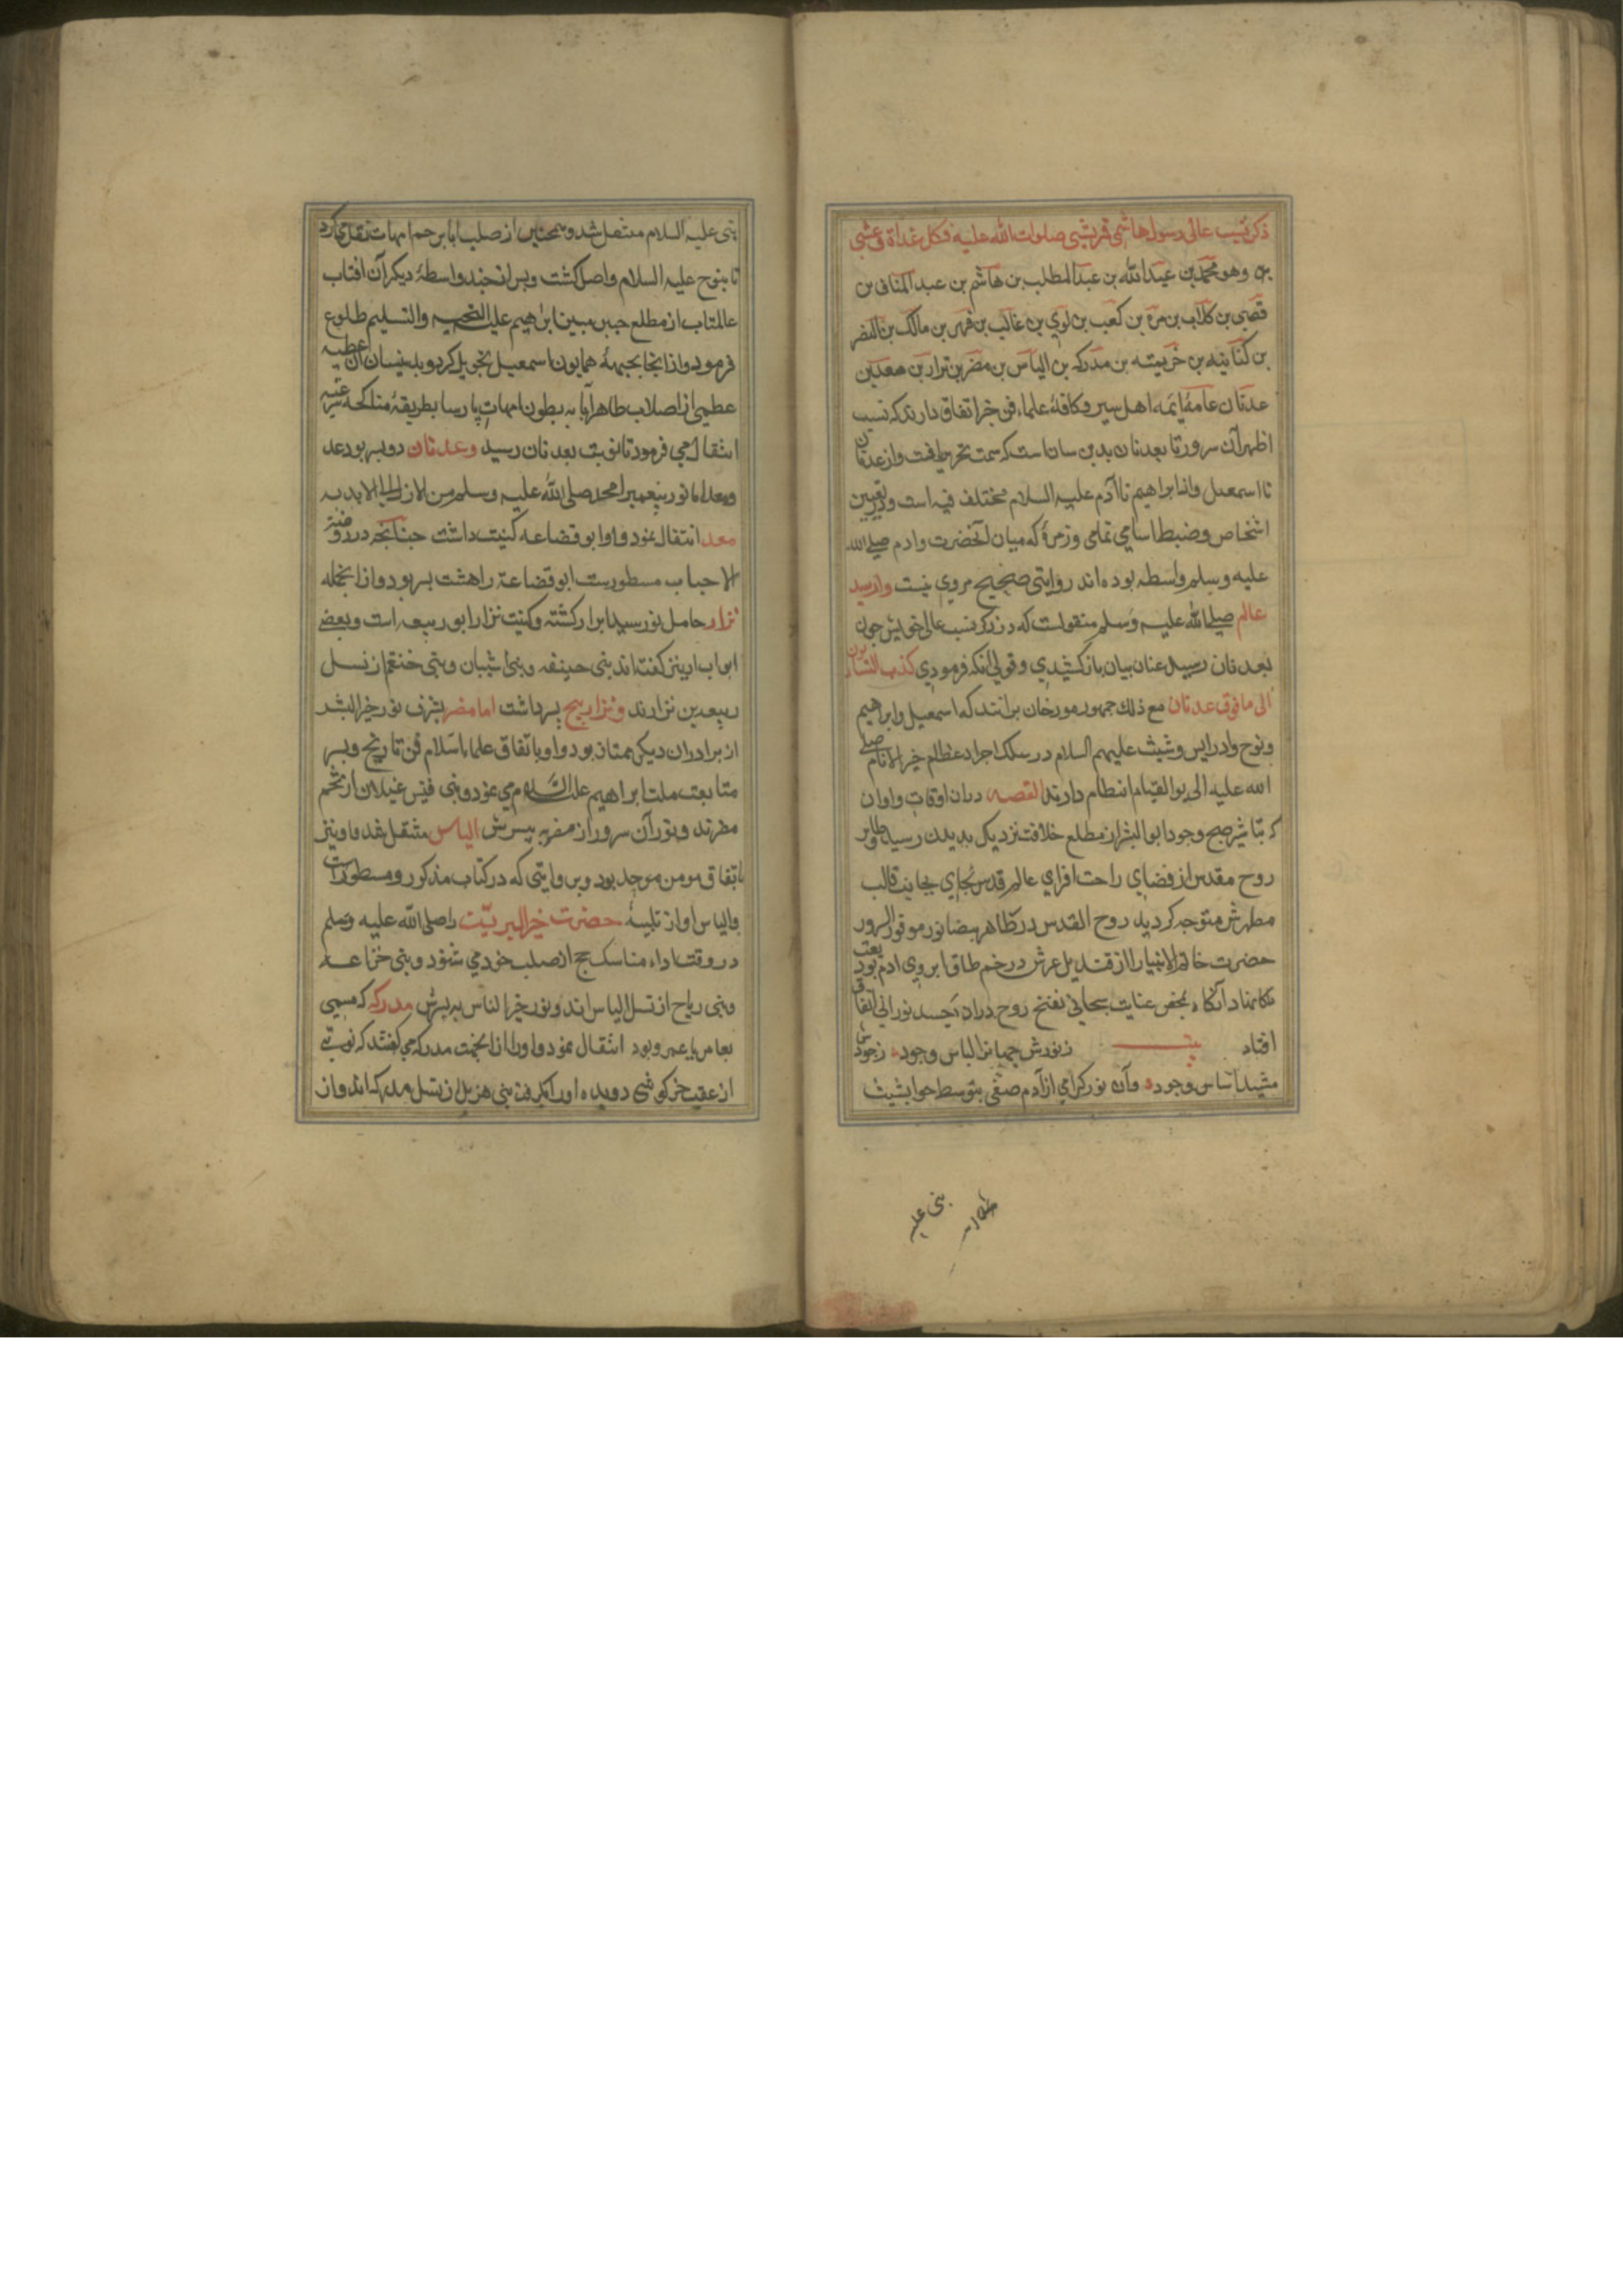 ذكر نسب عالی رسول هاشمی قریشی صلوات الله علیه فی كل غداة و عشی
وهو محمد بن عبدالله بن عبدالمطلب بن هاشم بن عبد المناف بن
قصی بن كلاب بن مرة بن كعب بن لوی بن غالب بن فهر بن مالك بن النضر
بن كنانه بن خزیمه بن مدركه بن الیاس بن مضر بن نزار بن معد بن
عدنان عامهٔ ائمه اهل سیر و كافهٔ علماء فن خبر اتفاق دارند كه نسب
اطهر آن سرور تا بعدنان بدین سان است كه سمت تحریر یافت و از عدنان
تا اسمعیل و از ابراهیم تا آدم علیه السلام مختلف فیه است و در تعیین
اشخاص و ضبط اسامی تمامی و زمرهٔ كه میان آنحضرت و ادم صلی الله
علیه وسلم واسطه بوده اند روایتی صحیح مروی نیست و از سید
عالم صلی الله علیه وسلم منقولست كه در ذكر نسب عالی خویش چون
بعدنان رسید عنان بیان باز كشیدی و قولی آنكه فرمودی كذب النسابون
الی ما فوق عدنان مع ذلك جمهور مورخان برانند كه اسمعیل و ابراهیم
و نوح و ادریس و شیث علیهم السلام در سلك اجداد عظام خیر الانام صلی
الله علیه الی یوم القیام انتظام دارند القصه دران اوقات و اوان
كه تباشیر صبح وجود ابوالبشر از مطلع خلافت نزدیك بدیدن رسید و طایر
روح مقدس از فضای راحت افزای عالم قدس بجانب قالب
مطهرش متوجه كردید روح القدس در مظاهر بیضا نور موفور السرور
حضرت خاتم الانبیا را از قندیل عرش در خم طاق ابروی ادم بودیعت
نهاد آنكاه بمحض عنایت سبحانی نفخ روح دران جسد نورانی اتفاق
افتاد بیت ز نورش جهانرا لباس وجود ز جودش
مشید اساس وجود و آن نور كرامی از آدم صفی بتوسط حوا بشیث
نبی علیه
نبی علیه السلام منتقل شد و همچنین از صلب ابا برحم امهات نقل میكرد
تا بنوح علیه السلام واصل كشت و پس از چند واسطهٔ دیكر آن افتاب
عالمتاب از مطلع جبین مبین ابراهیم علیه التحیه والتسلیم طلوع
فرمود و از انجا بجبههٔ همایون اسمعیل تحویل كرد و بدینسان آن عطیه
عظمی از اصلاب طاهر آبا به بطون امهات پارسا بطریقهٔ مناكحه شرعیه
انتقال می فرمود تا نوبت بعدنان رسید و عدنان دو پسر بود عد
و معد اما نور پیغمبر امحمد صلی الله علیه وسلم من الازل الی الابد به
معد انتقال نمود و او ابو قضاعه كنیت داشت چنانچه در روضة
الاحباب مسطورست ابو قضاعة را هشت پسر بود و از انجمله
نزار حامل نور سید ابرار كشته و كنیت نزار ابو ربیعه است و بعضی
ابو ایاد نیز كفته اند بنی حنیفه و بنی شیبان و بنی خثعم از نسل
ربیعه بن نزارند و نزار پنج پسر داشت اما مضر بشرف نور خیر البشر
از برادران دیكر ممتاز بود و او باتفاق علماء اسلام فن تاریخ و سیر
متابعت ملت ابراهیم علیه السلام می نمود و بنی قیس غیلان از تخم
مضرند و نور آن سرور از مضر به پسرش الیاس منتقل شد و او نیز
باتفاق مومن موحد بود و بروایتی كه در كتاب مذكور و مسطور است
والیاس آواز تلبیهٔ حضرت خیر البریت را صلی الله علیه وسلم
در وقت اداء مناسك حج از صلب خود می شنود و بنی خزاعه
و بنی ریاح از نسل الیاس اند و نور خیر الناس به پسرش مدركه كه مسمی
بعامر یا عمرو بود انتقال نمود و اورا از انجهت مدركه می كفتند كه نوبتی
از عقب خركوشی دویده اورا بكرفت بنی هزیل از نسل مدركه اند و از